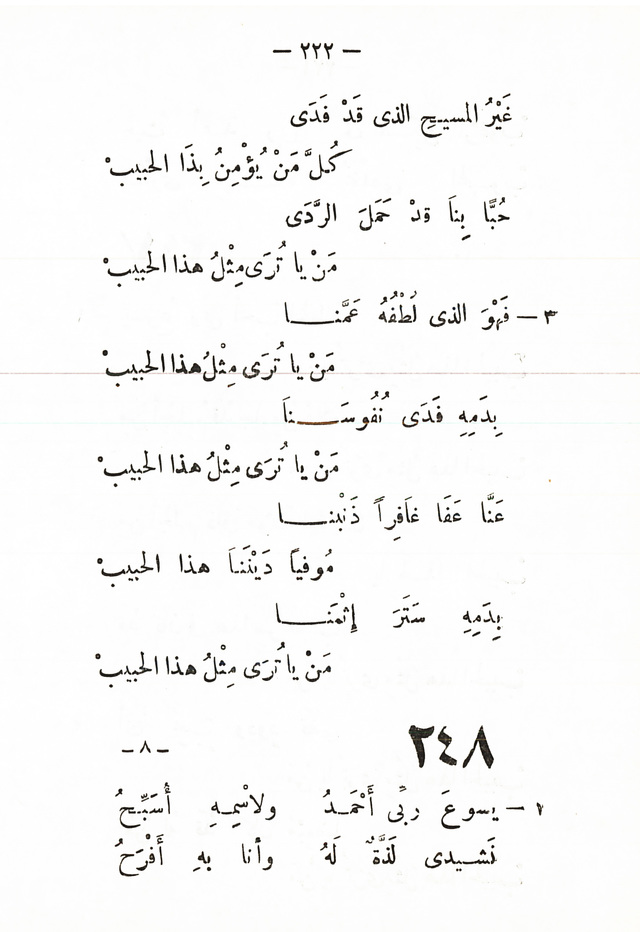 — ٢٢٢ —
غَيْرُ المسيحِ الذى قَدْ فَدَى
كُلَّ مَنْ يُؤْمِنُ بِذَا الحبيبْ
حُبًّا بِنَا قدْ حَمَلَ الرَّدَى
مَنْ يا تُرَى مِثْلُ هذا الحبيبْ
٣ — فَهْوَ الذى لُطْفُهُ عَمَّنـــا
مَنْ يا تُرَى مِثْلُ هذا الحبيبْ
بِدَمِهِ فَدَى نُفُوسَـــنَا
مَنْ يا تُرَى مِثْلُ هذا الحبيبْ
عَنَّا عَفَا غَافِراً ذَنْبَنـــا
مُوفياً دَيْنَنَا هذا الحبيبْ
بِدَمِهِ سَتَرَ إِثْمَنـــا
مَنْ يا تُرَى مِثْلُ هذا الحبيبْ
٢٤٨
— ٨ —
١ — يسوعَ ربِّى أَحْمَـدُ ولاسْمِـهِ أُسَبِّـحُ
نَشـيدى لَذَّةٌ لَهُ وأنا بهِ أَفْرَحُ